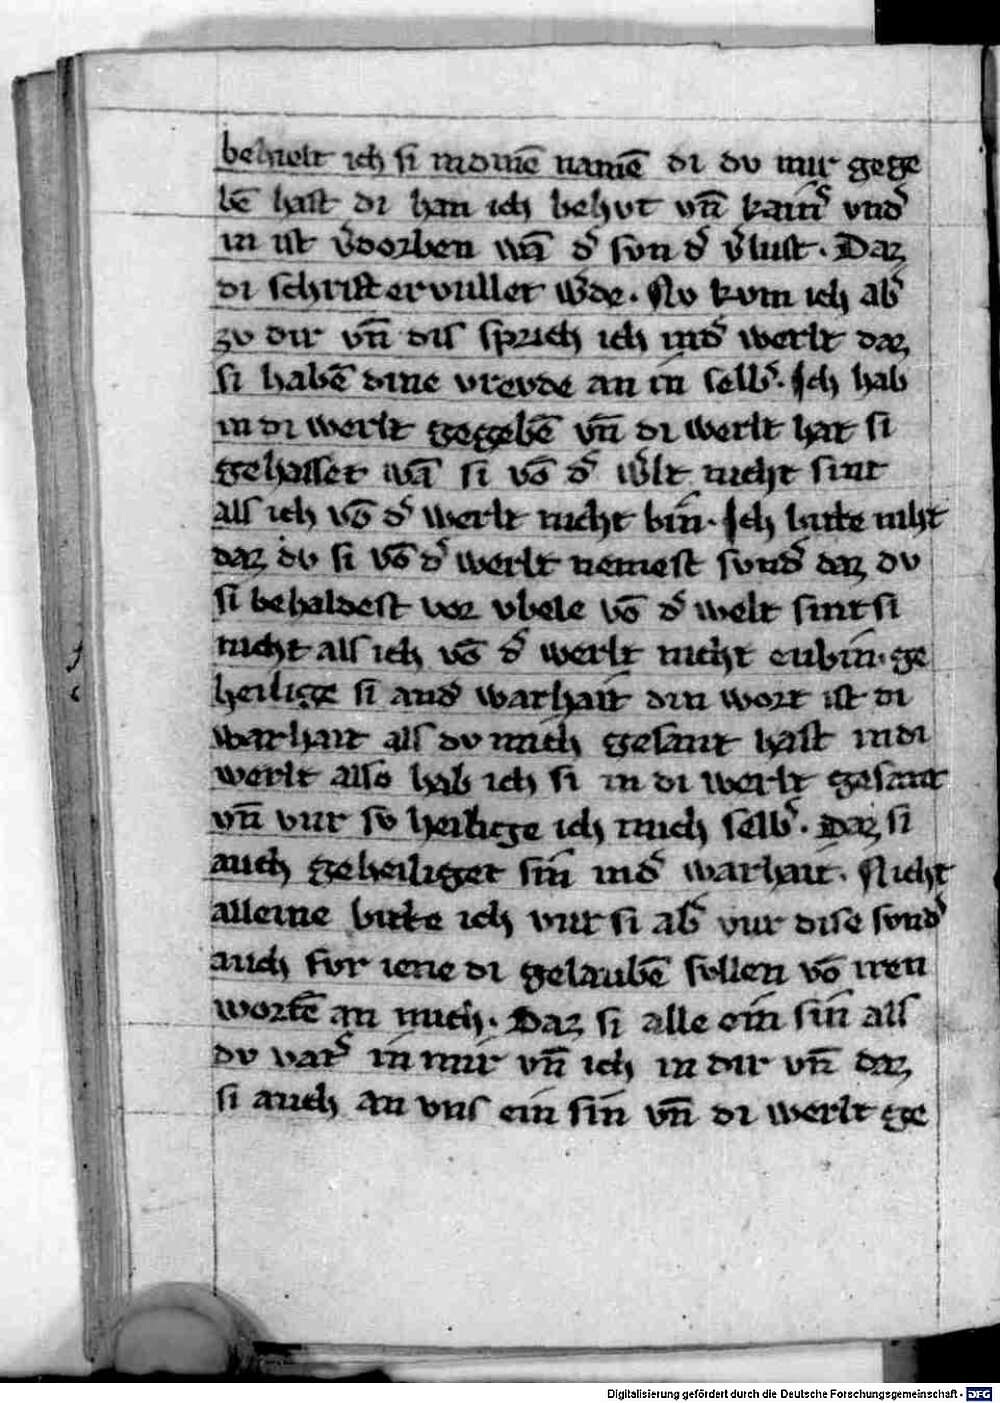 behielt ich si in dinē namē di du mir gege
bē hast di han ich behvt vn̄ kainˢ vndˢ
in ist vˢdorben wā dˢ svn dˢ vˢlust. Daz
di schrift ervullet wˢde. Nv kvm ich abˢ
zv dir vn̄ dis sprich ich indˢ werlt daz
si habē dine vrevde an in selbˢ. Ich hab
in di werlt gegebē vn̄ di werlt hat si
gehasset wā si vō dˢ wˢlt nicht sint
als ich vō dˢ werlt nicht bin. Ich bitte niht
daz dv si vō dˢ werlt nemest svndˢ daz dv
si behaldest vor vbele vō dˢ welt sint si
nicht als ich vō dˢ werlt nicht enbin. ge
heilige si andˢ warhait din wort ist di
warhait als dv mich gesant hast in di
werlt also hab ich si in di werlt gesant
vn̄ vur sv heilige ich mich selbˢ. Daz si
auch geheiliget sin indˢ warhait. Nicht
alleine bitte ich vur si abˢ vur dise svndˢ
auch fvr iene di gelaubē svllen vō iren
wortē an mich. Daz si alle ein sin als
dv vatˢ in mir vn̄ ich in dir vn̄ daz
si auch an vns ein sin vn̄ di werlt ge
Digitalisierung gefördert durch die Deutsche Forschungsgemeinschaft - DFG